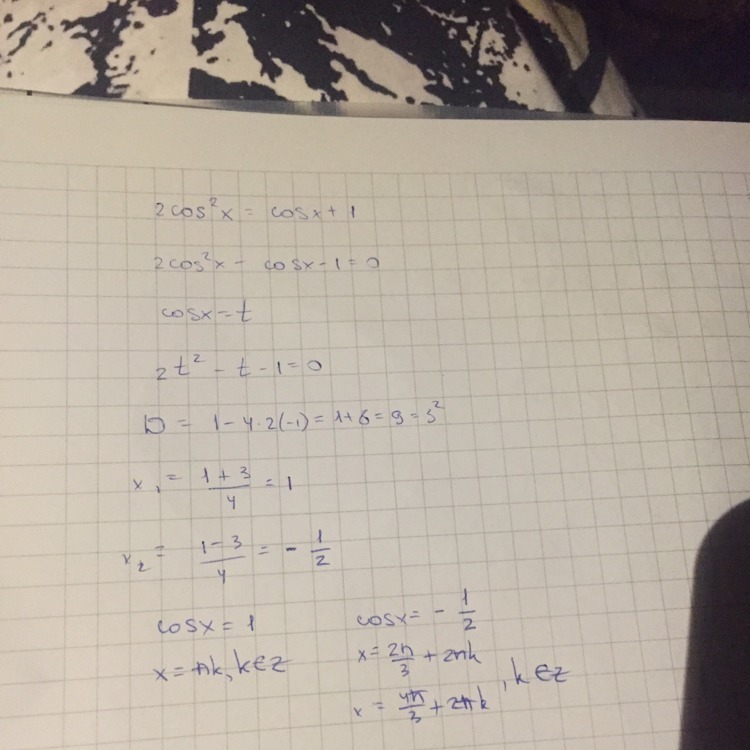 2cos²x = cosx + 1
2cos²x - cosx - 1 = 0
cosx = t
2t² - t - 1 = 0
D = 1 - 4·2(-1) = 1+8 = 9 = 3²
x₁ = (1+3)/4 = 1
x₂ = (1-3)/4 = - 1/2
cosx = 1
x = πk, k∈Z
cosx = - 1/2
x = 2π/3 + 2πk
x = 4π/3 + 2πk , k∈Z